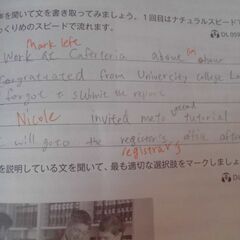 声を聞いて文を書き取ってみましょう。1回目はナチュラルスピードで
っくりめのスピードで流れます。
DL 059
Mark left
Work at Cafeterteria above an above
Congratuated from University college Lon
forgot to submit the report
Nicole invited me to second tutorial
I will go to the registoror's office after
registrar's
を説明している文を聞いて、最も適切な選択肢をマークしましょ